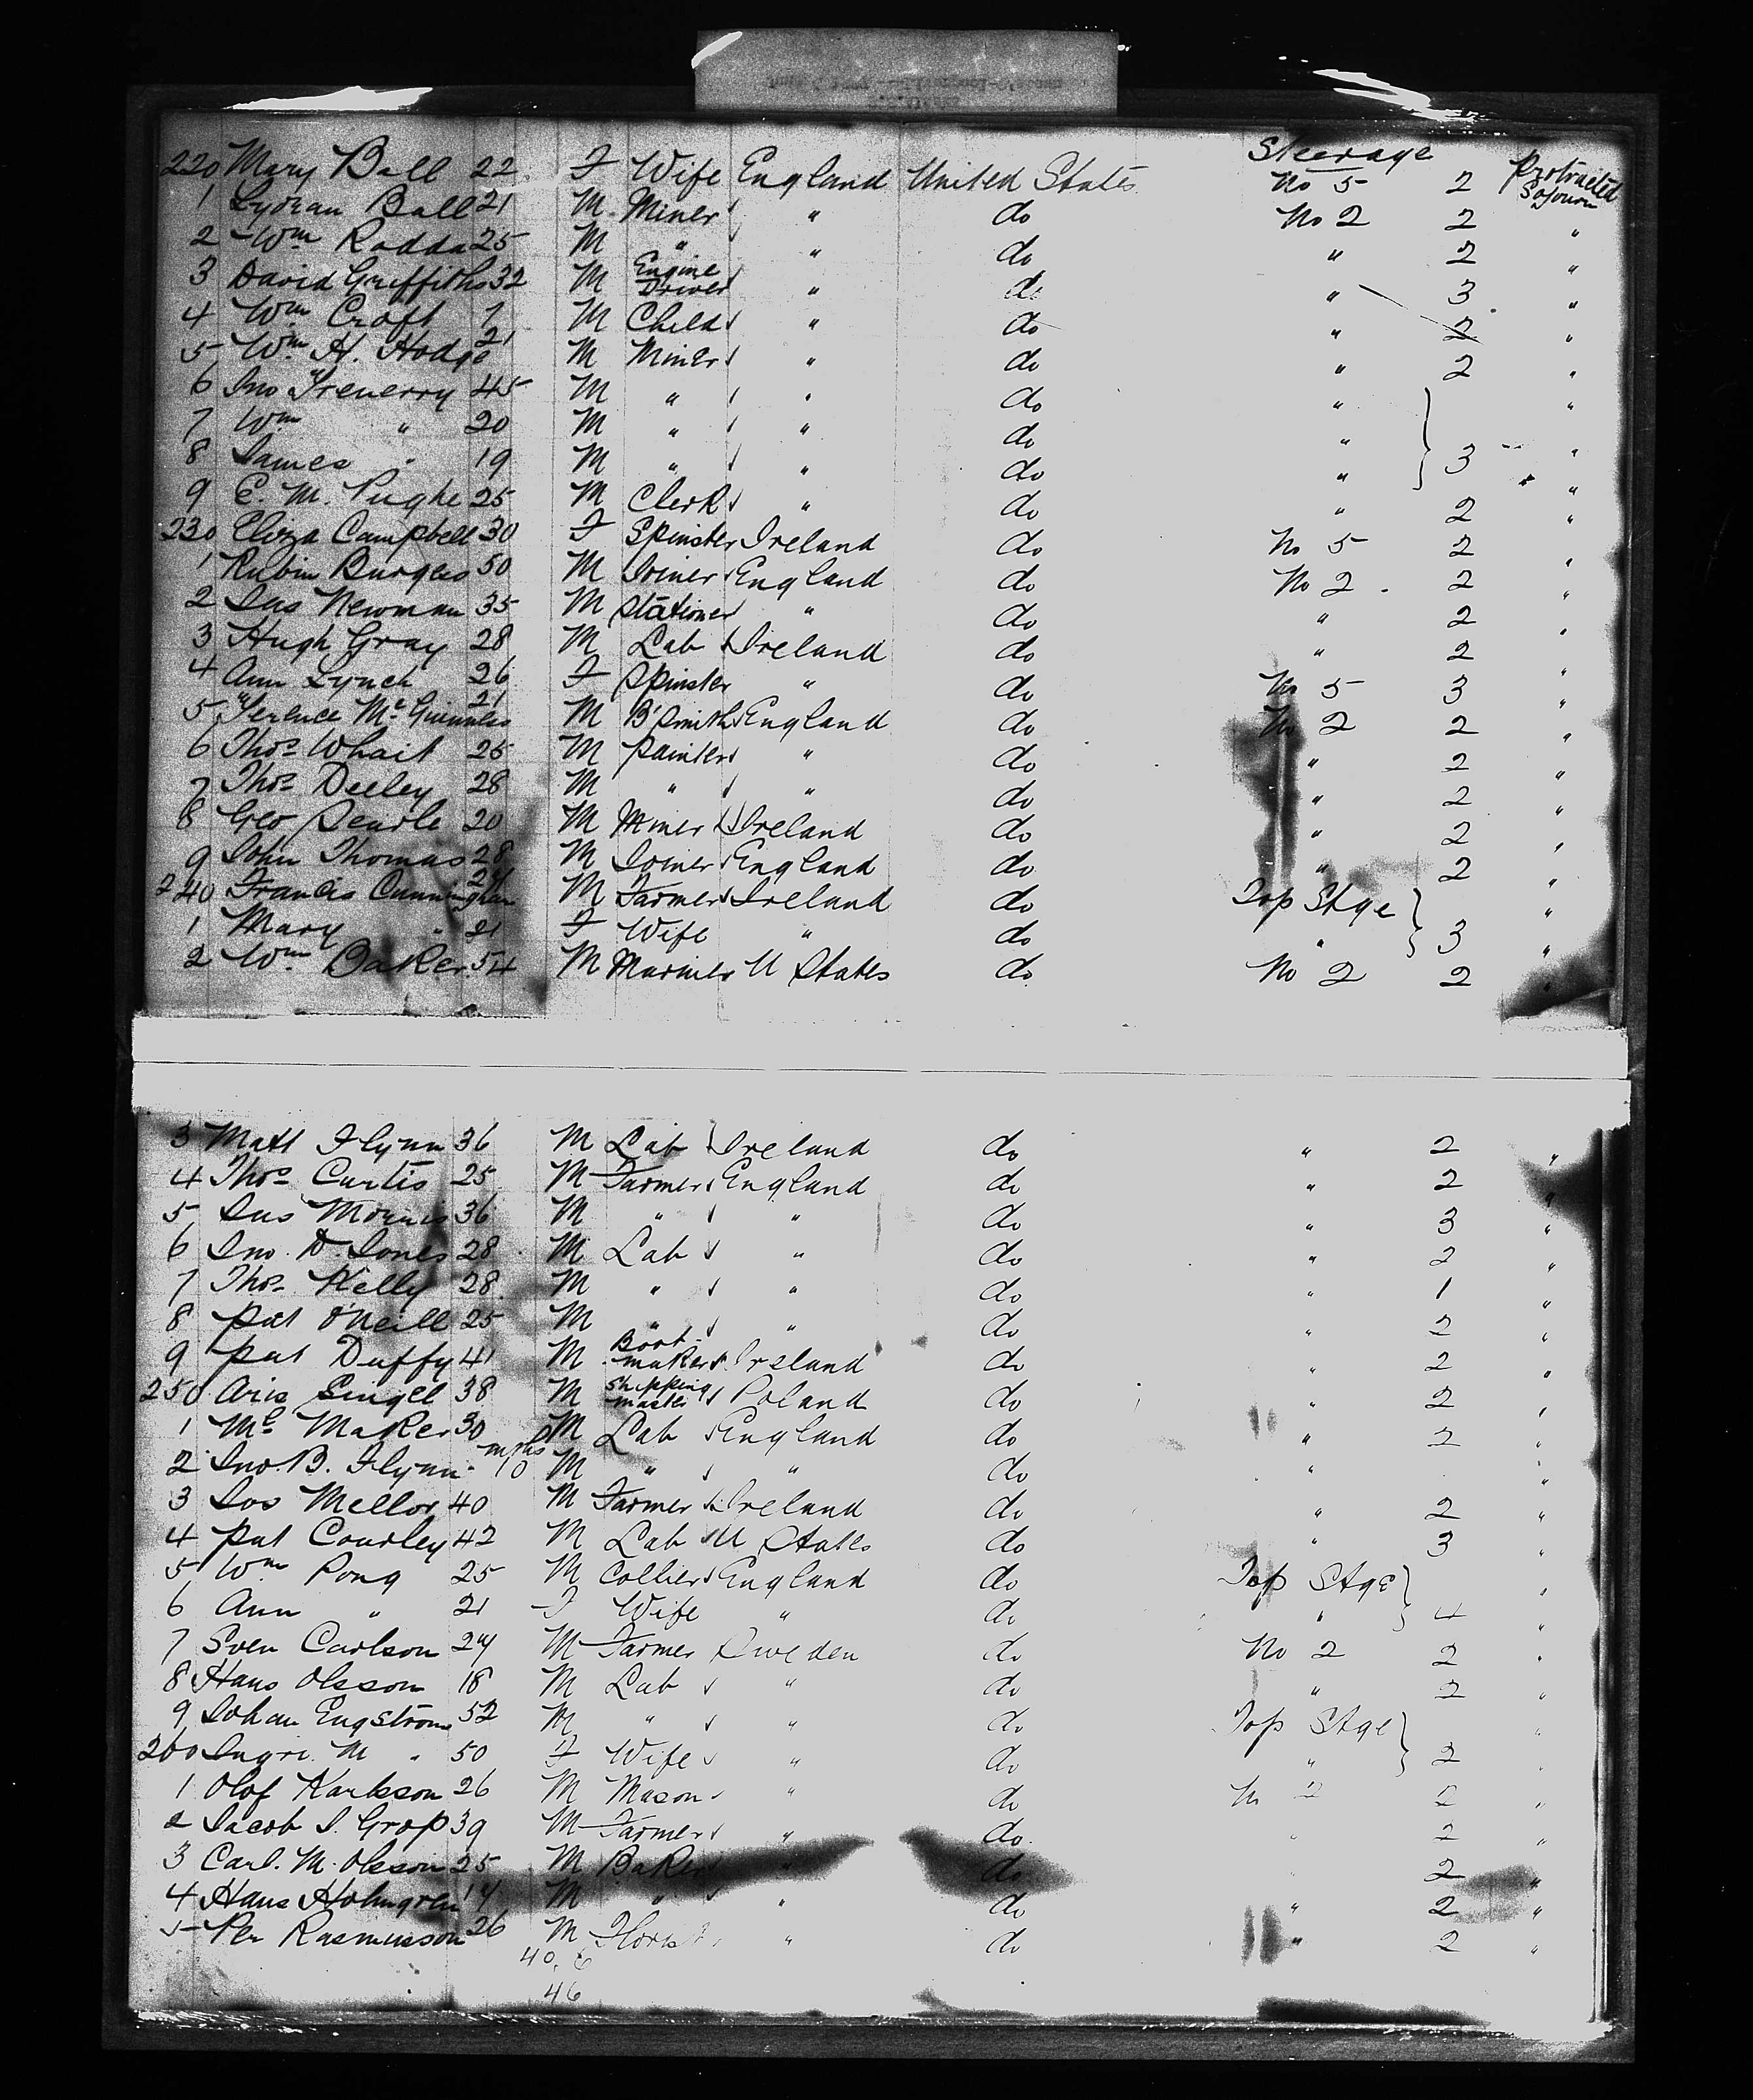 Steerage
220 Mary Ball 22 F Wife England United States No 5 2 Protracted Sojourn
1 Lydian Ball 21 M Miner " do No 2 2 "
2 Wm Rodda 25 M " " do " 2 "
3 David Griffiths 32 M Engine Driver " do " 3 "
4 Wm Croft 7 M Child " do " 2 "
5 Wm H. Hodge 21 M Miner " do " 2 "
6 Jno Trenerry 45 M " " do " "
7 Wm " 20 M " " do " "
8 James " 19 M " " do " 3 "
9 E. M. Pughe 25 M Clerk " do " 2 "
230 Eliza Campbell 30 F Spinster Ireland do No 5 2 "
1 Rubin Burgess 50 M Joiner England do No 2 2 "
2 Jas Newman 35 M Stationer " do " 2 "
3 Hugh Gray 28 M Lab Ireland do " 2 "
4 Ann Lynch 26 F Spinster " do No 5 3 "
5 Terence Mc Guinness 21 M B'Smith England do No 2 2 "
6 Thos Whait 25 M Painter " do " 2 "
7 Thos Deeley 28 M " " do " 2 "
8 Geo Searle 20 M Miner Ireland do " 2 "
9 John Thomas 28 M Joiner England do " 2 "
240 Francis Cunningham 24 M Farmer Ireland do Top Stge "
1 Mary " 21 F Wife " do " 3 "
2 Wm Baker 54 M Mariner U States do No 2 2 "
3 Matt Flynn 36 M Lab Ireland do " 2 "
4 Thos Curtis 25 M Farmer England do " 2 "
5 Jas Morris 36 M " " do " 3 "
6 Jno. D. Jones 28 M Lab " do " 2 "
7 Thos Kelly 28 M " " do " 1 "
8 Pat O'Neill 25 M " " do " 2 "
9 Pat Duffy 41 M Boot maker Ireland do " 2 "
250 Aria Singel 38 M Shipping master Poland do " 2 "
1 Mc Maker 30 M Lab England do " 2 "
2 Jno. B. Flynn mths 10 M " " do " "
3 Jos Mellor 40 M Farmer Ireland do " 2 "
4 Pat Courley 42 M Lab U States do " 3 "
5 Wm Pong 25 M Collier England do Top Stge "
6 Ann " 21 F Wife " do " 4 "
7 Sven Carlson 24 M Farmer Sweden do No 2 2 "
8 Hans Olsson 18 M Lab " do " 2 "
9 Johan Engstrom 52 M " " do Top Stge "
260 Ingri. M " 50 F Wife " do " 2 "
1 Olof Karlsson 26 M Mason " do No 2 2 "
2 Jacob J. Grop 39 M Farmer " do " 2 "
3 Carl. M. Olsson 25 M Baker " do 2 "
4 Hans Holmgren 17 M " " do " 2 "
5 Per Rasmusson 26 M Florist " do " 2 "
40. 6
46